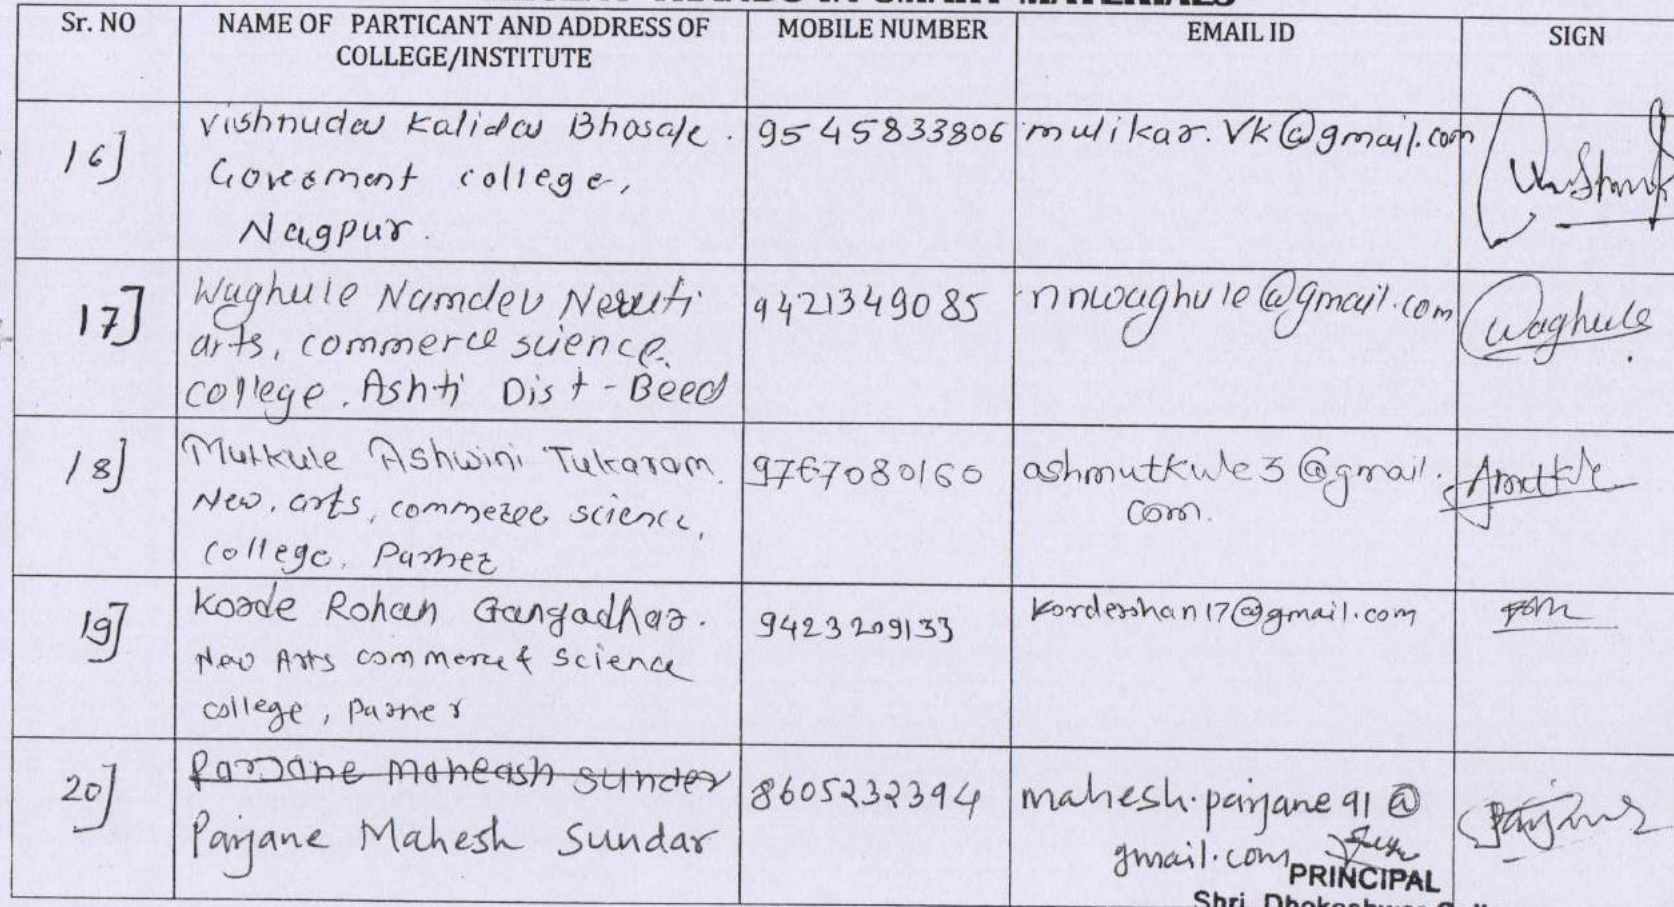 IN SMART MATERIALS
Sr. NO
NAME OF PARTICANT AND ADDRESS OF
COLLEGE/INSTITUTE
MOBILE NUMBER
EMAIL ID
SIGN
16]
Vishnudas Kalidas Bhosale.
Goverment college,
Nagpur.
9545833806
mulikar.vk@gmail.com
17]
Waghule Namdev
arts, commerce science.
college, Ashti Dist - Beed
9421349085
nnwaghule@gmail.com
Waghule
18]
Mutkule Ashwini Tukaram.
New, arts, commerce science,
college, Parner
9767080160
ashmutkule3@gmail.
com.
Amutkule
19]
Korde Rohan Gangadhar.
New Arts commerce & Science
college, Parner
9423209133
korderohan17@gmail.com
20]
Parjane Maheash Sunder
Parjane Mahesh Sundar
8605232394
mahesh.parjane91@
gmail.com
Parjane
PRINCIPAL
Shri. Dhokeshwar